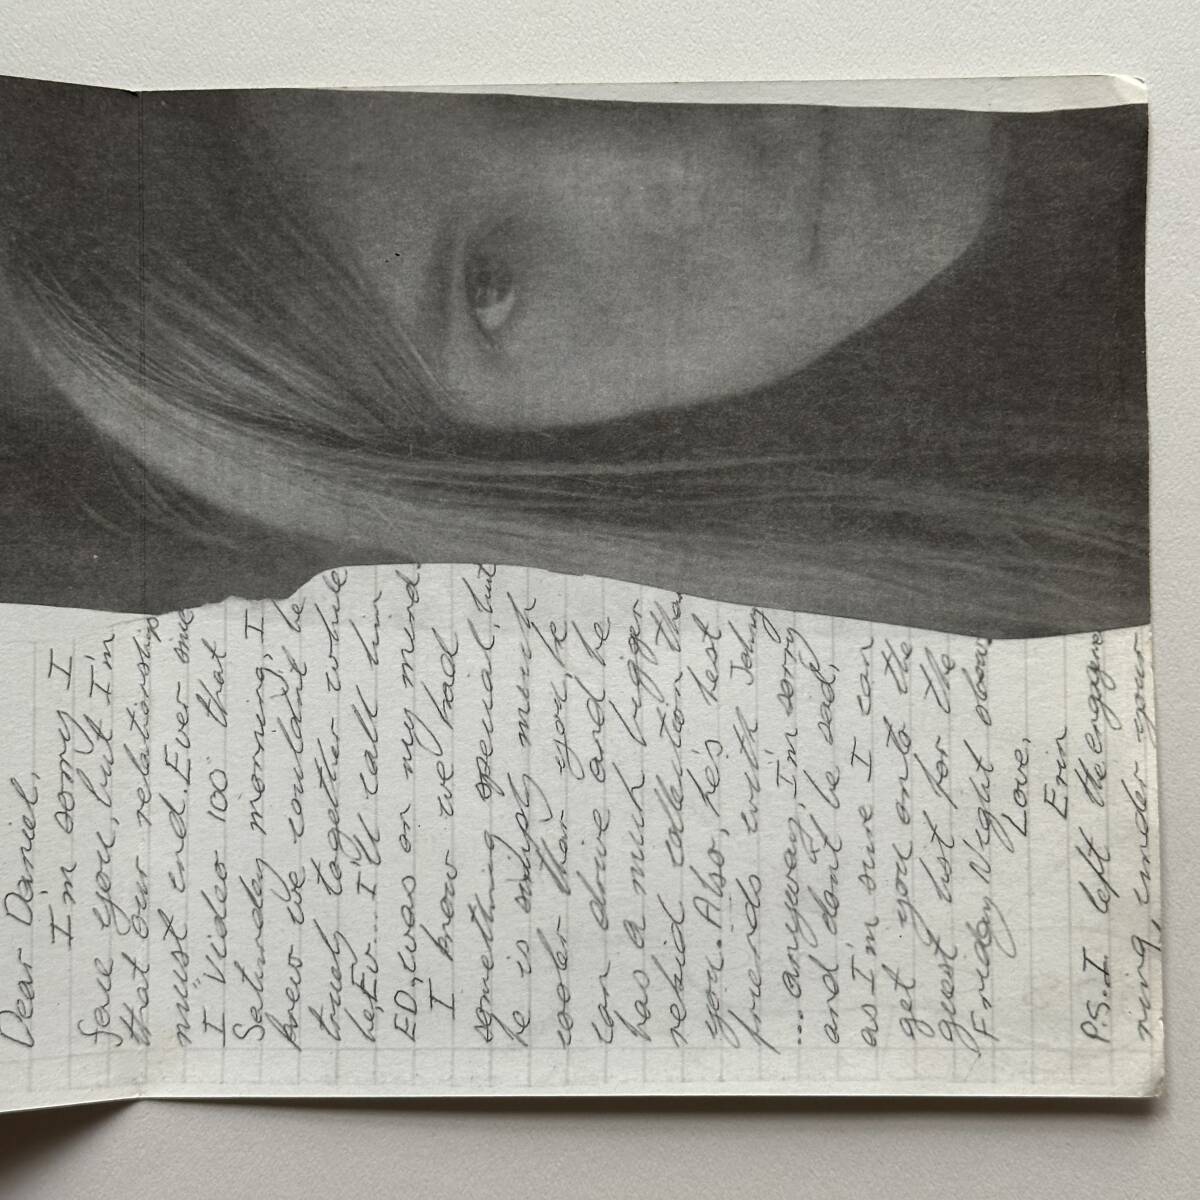 Dear Daniel,
I'm sorry I
you, but I'm
that our relationship
must end. Ever since
I Video 100 that
Saturday morning, I
knew we couldn't be
truly together while
he, Ev... I'll call him
ED, was on my mind.
I know we had
something special, but
he is simply much
cooler than you, he
can drive and he
has a much bigger
collection than
you. Also, he's best
friends with Johny
... anyway, I'm sorry
and don't be sad,
as I'm sure I can
get you onto the
guest list for the
Friday Night
Love,
Erin
P.S. I left the engage
ring, under your